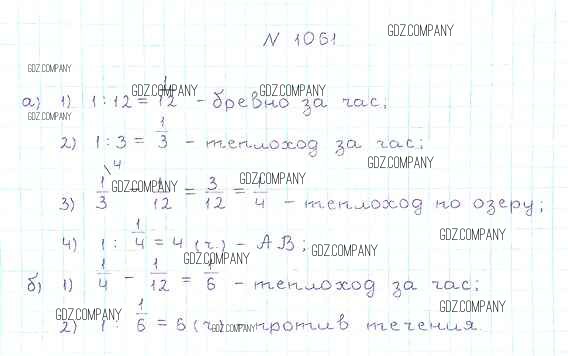 N 1061
GDZ.COMPANY
GDZ.COMPANY
GDZ.COMPANY GDZ.COMPANY
а) 1) 1 : 12 = 1/12 - бревно за час;
GDZ.COMPANY
2) 1 : 3 = 1/3 - теплоход за час;
GDZ.COMPANY
GDZ.COMPANY GDZ.COMPANY
3) 1/3 \4 - 1/12 = 3/12 = 1/4 - теплоход по озеру;
GDZ.COMPANY
4) 1 : 1/4 = 4 (ч.) - АВ;
GDZ.COMPANY
GDZ.COMPANY
б) 1) 1/4 - 1/12 = 1/6 - теплоход за час;
GDZ.COMPANY
GDZ.COMPANY
2) 1 : 1/6 = 6 (ч.) против течения.
GDZ.COMPANY